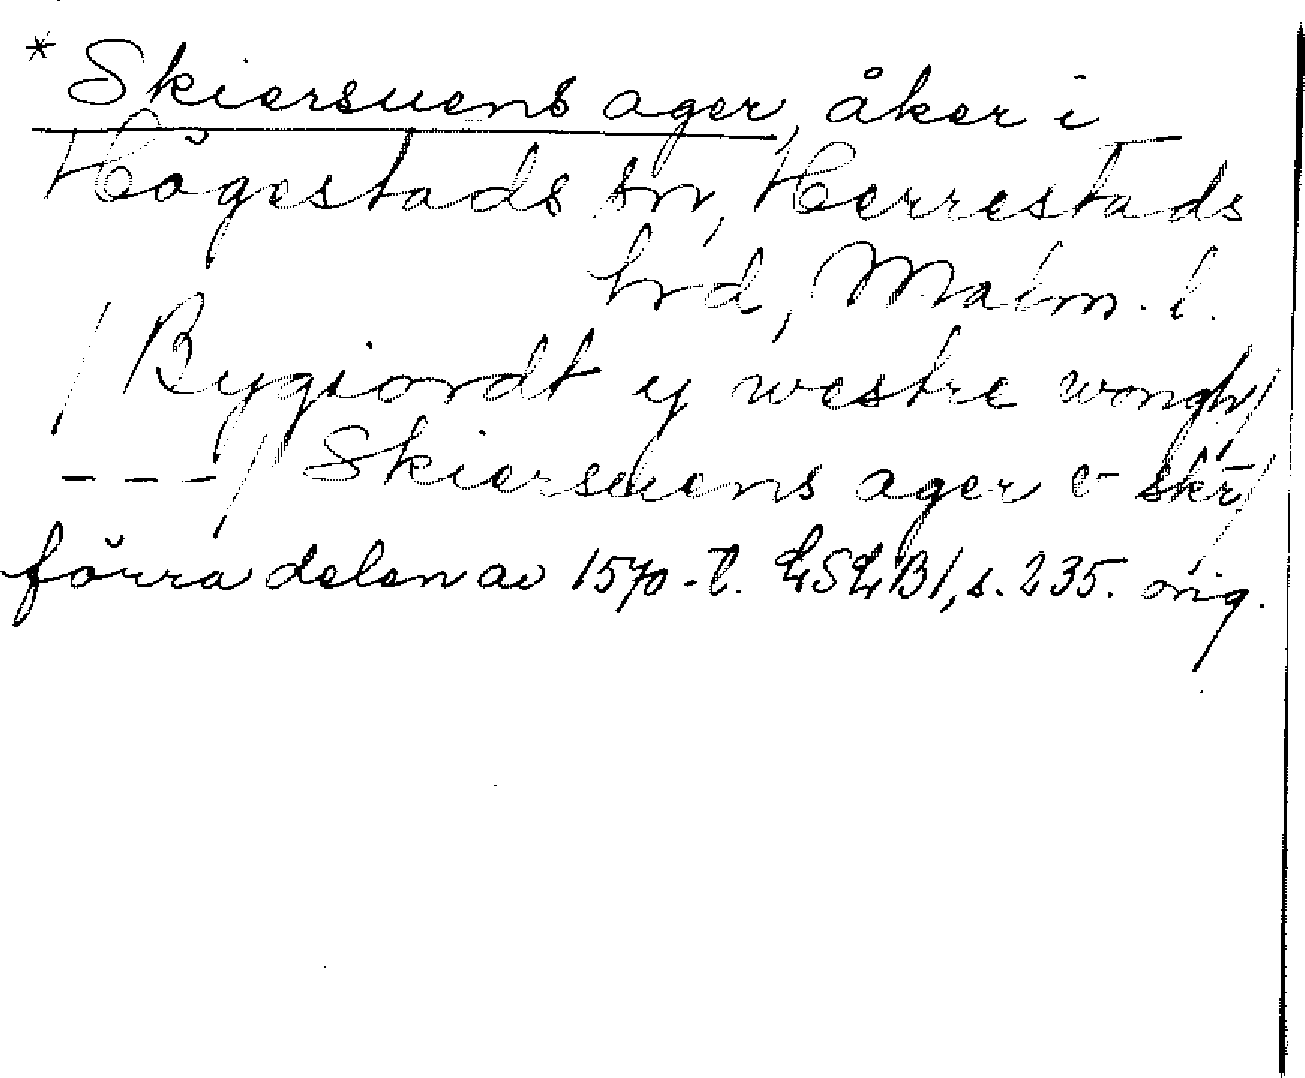 * Skiersuens ager, åker i
Högestads sn, Herrestads
hrd, Malm. l.
/ Bygiordt y westre wongh/
- - - / Skiersuens ager c- skr/
förra delen av 1570-t. LSLB1, s. 235. orig.